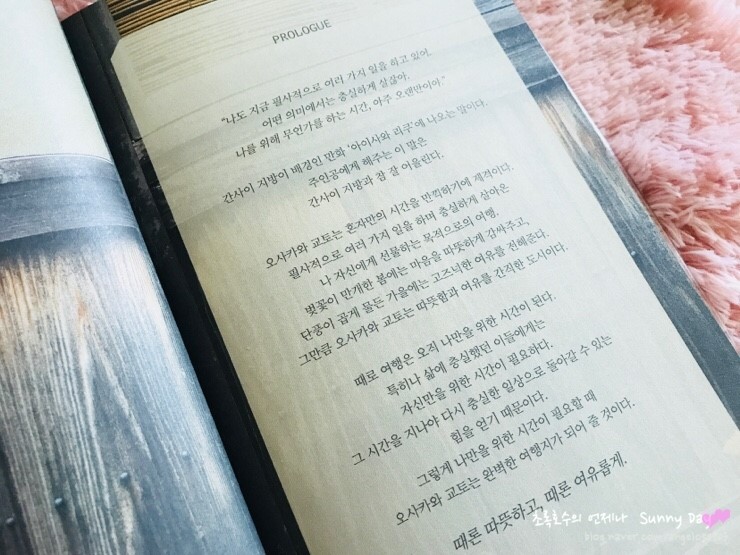 PROLOGUE
"나도 지금 필사적으로 여러 가지 일을 하고 있어.
어떤 의미에서는 충실하게 살잖아.
나를 위해 무언가를 하는 시간, 아주 오랜만이야."
간사이 지방이 배경인 만화 '아이사와 리쿠'에 나오는 말이다.
주인공에게 해주는 이 말은
간사이 지방과 참 잘 어울린다.
오사카와 교토는 혼자만의 시간을 만끽하기에 제격이다.
필사적으로 여러 가지 일을 하며 충실하게 살아온
나 자신에게 선물하는 목적으로의 여행.
벚꽃이 만개한 봄에는 마음을 따뜻하게 감싸주고,
단풍이 곱게 물든 가을에는 고즈넉한 여유를 전해준다.
그만큼 오사카와 교토는 따뜻함과 여유를 간직한 도시이다.
때로 여행은 오직 나만을 위한 시간이 된다.
특히나 삶에 충실했던 이들에게는
자신만을 위한 시간이 필요하다.
그 시간을 지나야 다시 충실한 일상으로 돌아갈 수 있는
힘을 얻기 때문이다.
그렇게 나만을 위한 시간이 필요할 때
오사카와 교토는 완벽한 여행지가 되어 줄 것이다.
때론 따뜻하고, 때론 여유롭게.
초록호수의 언제나 Sunny Day